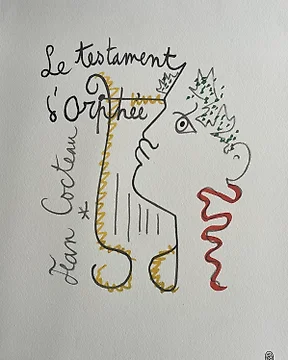 Le testament
d'Orphée
Jean Cocteau